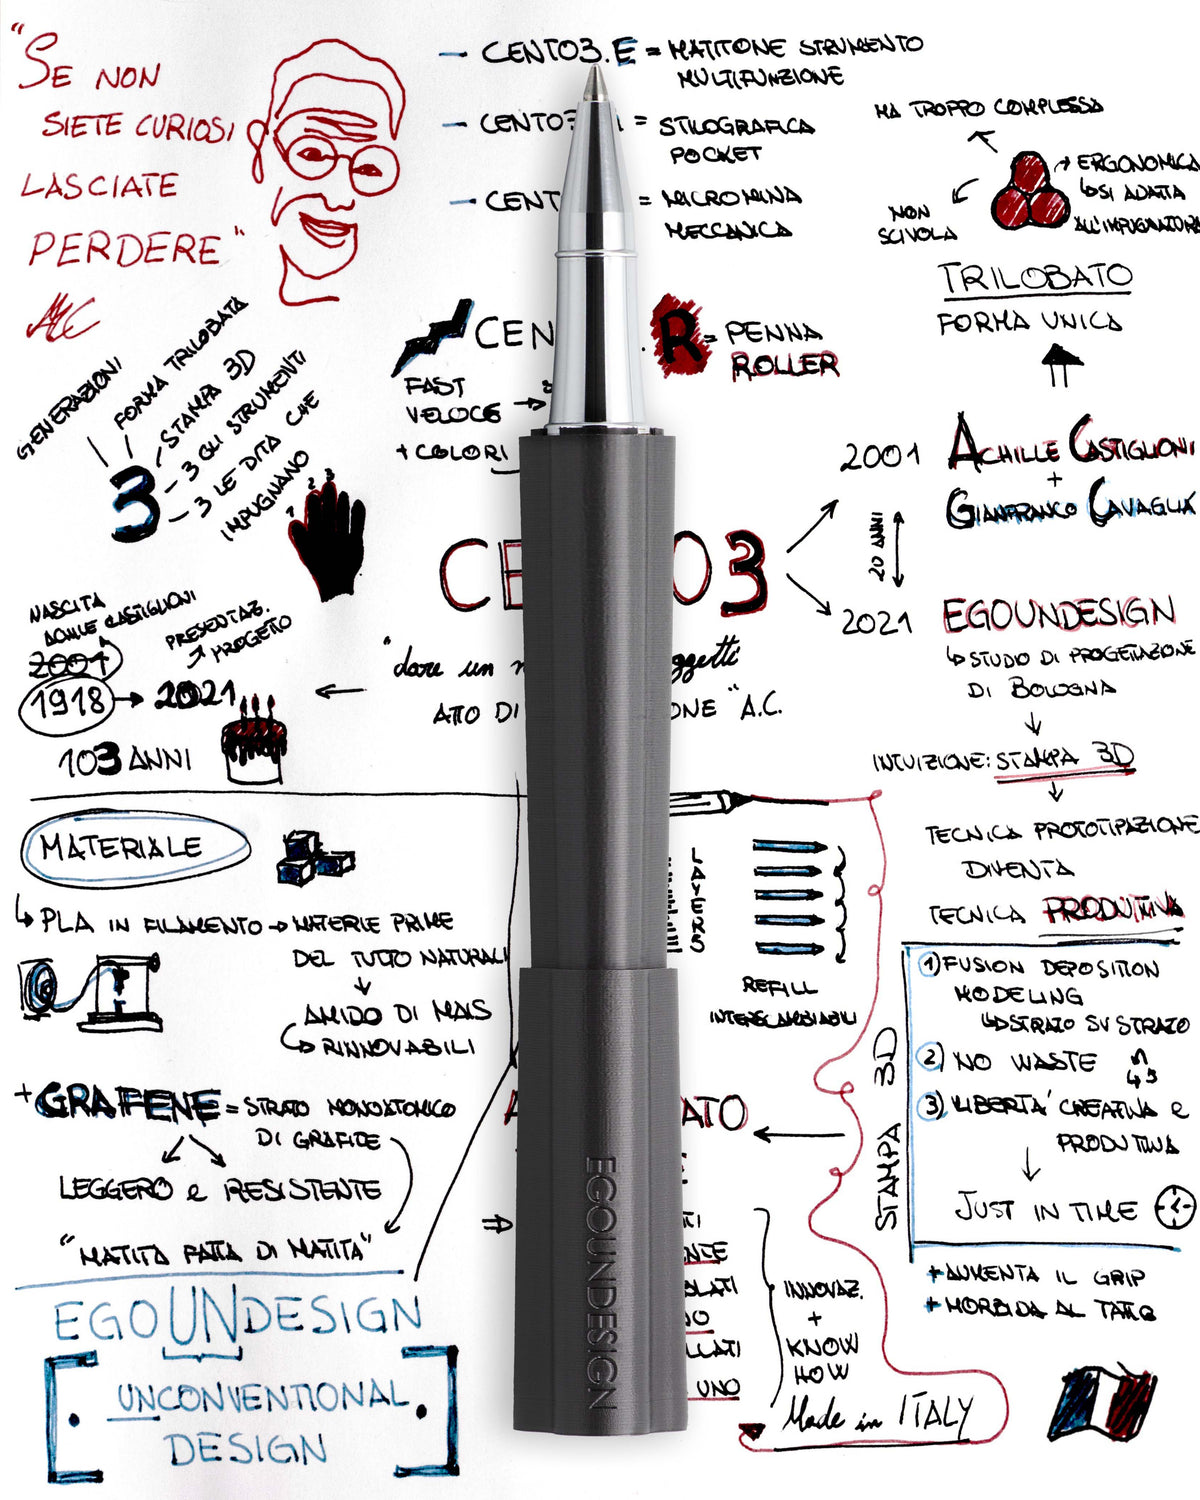 "SE NON
SIETE CURIOSI
LASCIATE
PERDERE"
AC
CENTO3.E = MATITONE STRUMENTO
MULTIFUNZIONE
= STILOGRAFICA
POCKET
= MICROMINA
MECCANICA
R = PENNA
ROLLER
FAST
VELOCE
+ COLORI
MA TROPPO COMPLESSA
ERGONOMICA
SI ADATTA
ALL'IMPUGNATURA
NON
SCIVOLA
TRILOBATO
FORMA UNICA
GENERAZIONI
FORMA TRILOBATA
STAMPA 3D
3 GLI STRUMENTI
3 LE DITA CHE
IMPUGNANO
3
1 2 3
CE O3
"dare un
ggetti
ATTO DI
ONE" A.C.
2001
ACHILLE CASTIGLIONI
+
GIANFRANCO CAVAGLIÀ
20 ANNI
2021
EGOUNDESIGN
STUDIO DI PROGETTAZIONE
DI BOLOGNA
INTUIZIONE: STAMPA 3D
TECNICA PROTOTIPAZIONE
DIVENTA
TECNICA PRODUTTIVA
NASCITA
ACHILLE CASTIGLIONI
2001
1918 → 2021
PRESENTAZ.
PROGETTO
103 ANNI
MATERIALE
PLA IN FILAMENTO → MATERIE PRIME
DEL TUTTO NATURALI
AMIDO DI MAIS
RINNOVABILI
+ GRAFENE = STRATO MONOATOMICO
DI GRAFITE
LEGGERO e RESISTENTE
"MATITA FATTA DI MATITA"
EGOUNDESIGN
UNCONVENTIONAL
DESIGN
LAYERS
REFILL
INTERSCAMBIABILI
STAMPA 3D
1) FUSION DEPOSITION
MODELING
STRATO SU STRATO
2) NO WASTE
3) LIBERTÀ CREATIVA e
PRODUTTIVA
JUST IN TIME
+ AUMENTA IL GRIP
+ MORBIDA AL TATTO
INNOVAZ.
+
KNOW
HOW
UNO
Made in ITALY
EGOUNDESIGN